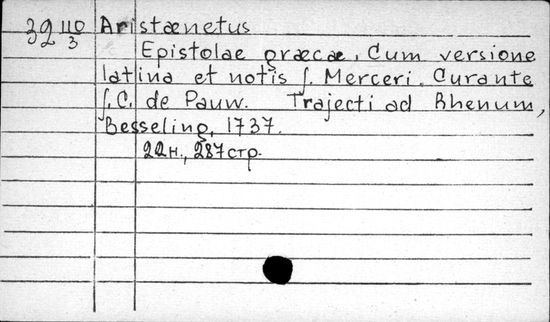 32 110/3 Aristænetus
Epistolae græcæ, Cum versione
latina et notis J. Merceri. Curante
J. C. de Pauw. Trajecti ad Rhenum,
Besseling, 1737.
22н., 287стр.